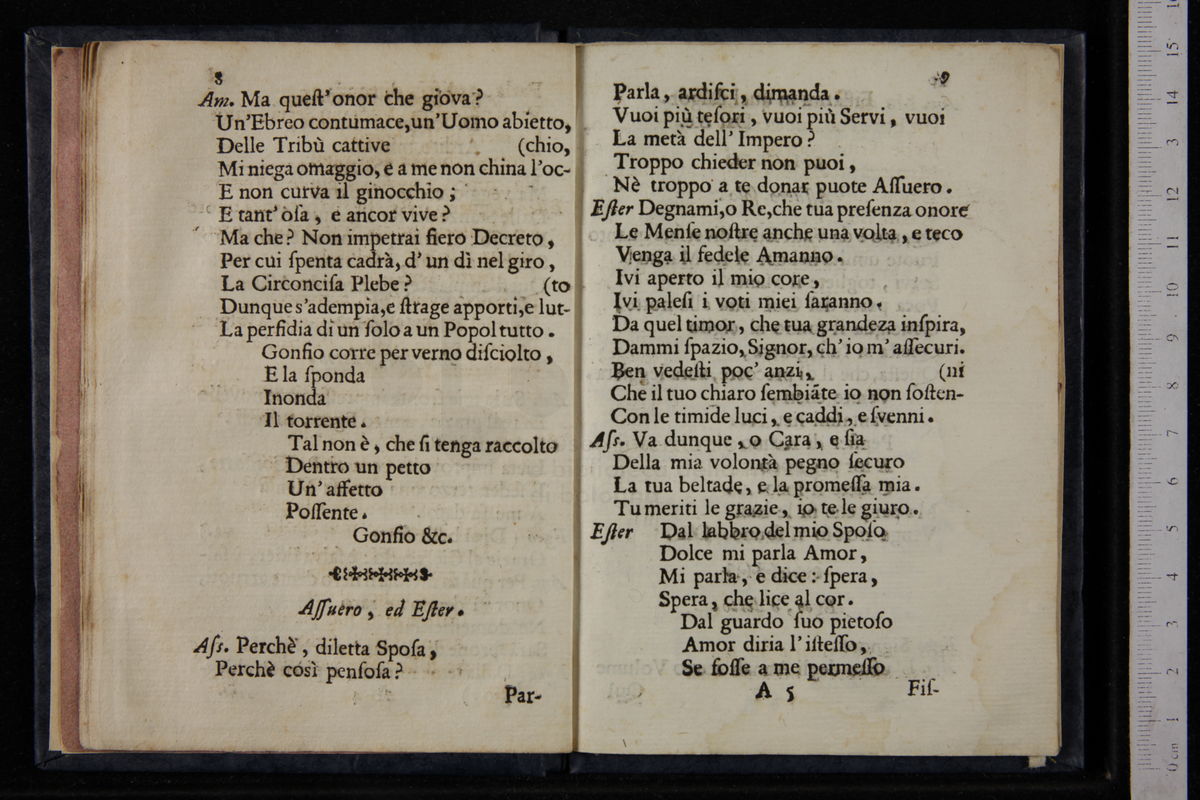 8
Am. Ma queſt'onor che giova?
Un'Ebreo contumace,un'Uomo abietto,
Delle Tribù cattive (chio,
Mi niega omaggio, e a me non china l'oc-
E non curva il ginocchio;
E tant' oſa, e ancor vive?
Ma che? Non impetrai fiero Decreto,
Per cui ſpenta cadrà, d' un dì nel giro,
La Circonciſa Plebe? (to
Dunque s'adempia,e ſtrage apporti,e lut-
La perfidia di un ſolo a un Popol tutto.
Gonfio corre per verno diſciolto,
E la ſponda
Inonda
Il torrente.
Tal non è, che ſi tenga raccolto
Dentro un petto
Un' affetto
Poſſente.
Gonfio &c.
Aſſuero, ed Eſter.
Aſs. Perchè, diletta Spoſa,
Perchè così penſoſa?
Par-
9
Parla, ardiſci, dimanda.
Vuoi più teſori, vuoi più Servi, vuoi
La metà dell' Impero?
Troppo chieder non puoi,
Nè troppo a te donar puote Aſſuero.
Eſter Degnami,o Re,che tua preſenza onore
Le Menſe noſtre anche una volta, e teco
Venga il fedele Amanno.
Ivi aperto il mio core,
Ivi paleſi i voti miei ſaranno.
Da quel timor, che tua grandeza inſpira,
Dammi ſpazio, Signor, ch' io m' aſſecuri.
Ben vedeſti poc' anzi, (ni
Che il tuo chiaro ſembiãte io non ſoſten-
Con le timide luci, e caddi, e ſvenni.
Aſs. Va dunque, o Cara, e ſia
Della mia volontà pegno ſecuro
La tua beltade, e la promeſſa mia.
Tu meriti le grazie, io te le giuro.
Eſter Dal labbro del mio Spoſo
Dolce mi parla Amor,
Mi parla, e dice: ſpera,
Spera, che lice al cor.
Dal guardo ſuo pietoſo
Amor diria l' iſteſſo,
Se foſſe a me permeſſo
A 5 Fiſ-
0 cm 1 2 3 4 5 6 7 8 9 10 11 12 13 14 15